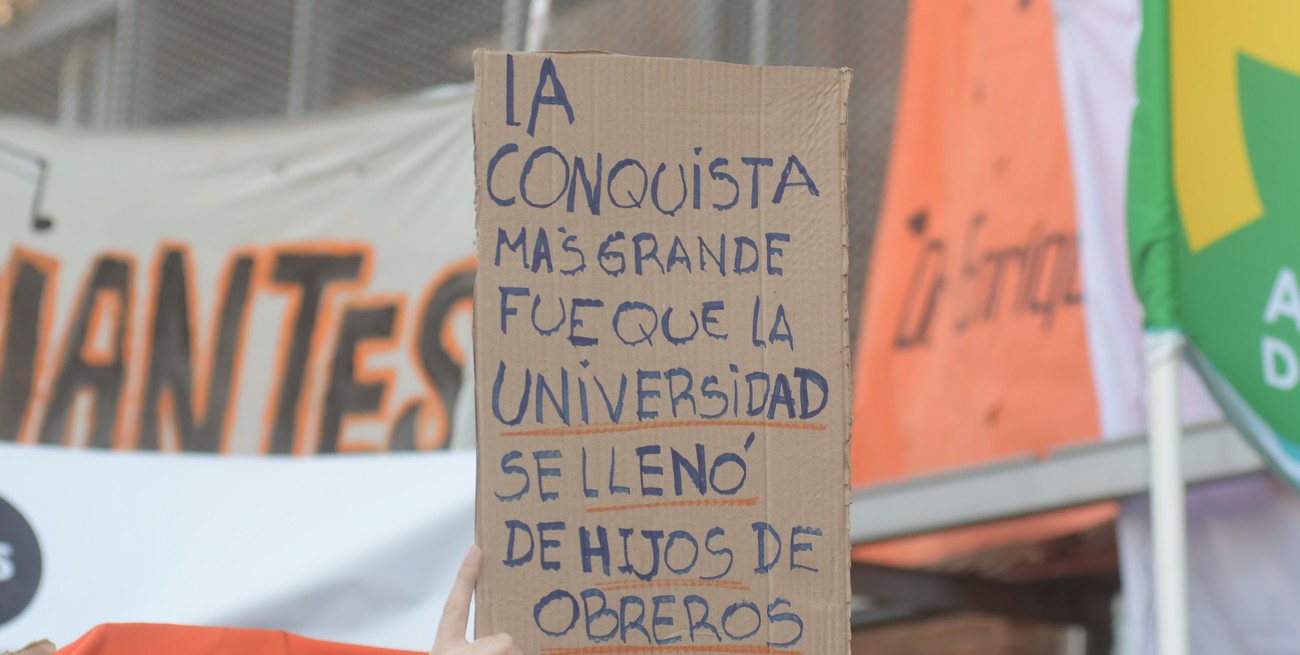 LA
CONQUISTA
MÁS GRANDE
FUE QUE LA
UNIVERSIDAD
SE LLENÓ
DE HIJOS DE
OBREROS